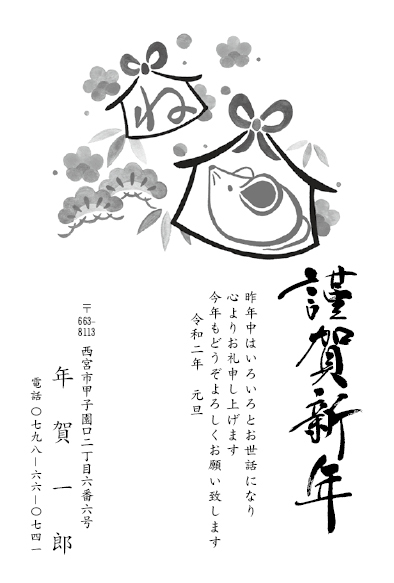 ね
謹賀新年
昨年中はいろいろとお世話になり
心よりお礼申し上げます
今年もどうぞよろしくお願い致します
令和二年　元旦
〒663-8113
西宮市甲子園口二丁目六番六号
年賀一郎
電話 〇七九八―六六―〇七四一